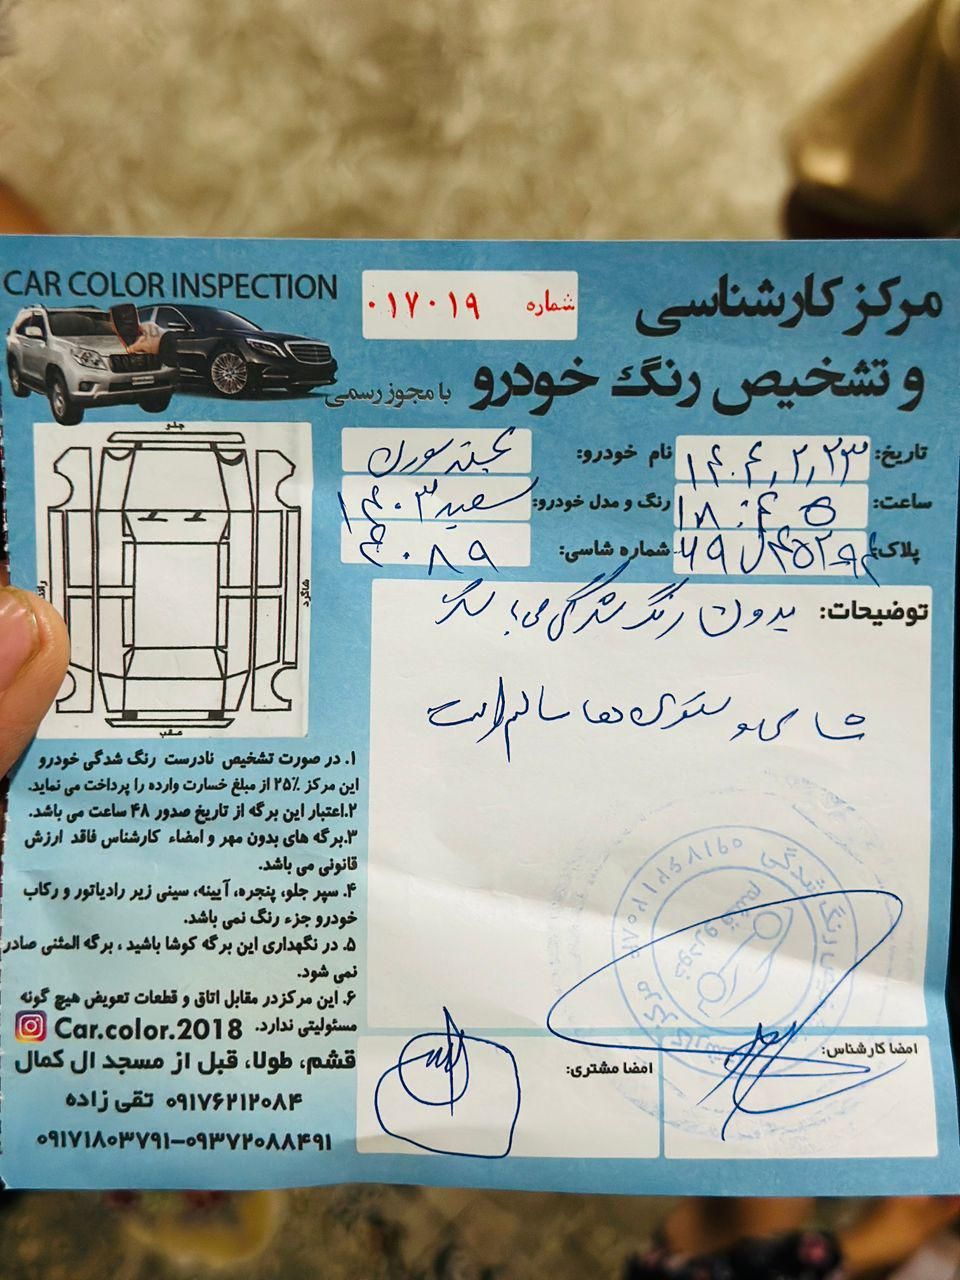 CAR COLOR INSPECTION
مرکز کارشناسی
و تشخیص رنگ خودرو
با مجوز رسمی
شماره ۰۱۷۰۱۹
تاریخ: ۱۴۰۴,۲,۲۳
نام خودرو:
ساعت: ۱۸:۴۵
رنگ و مدل خودرو: سفید ۱۴۰۳
پلاک:
شماره شاسی: ۴۰۸۹
جلو
راننده
شاگرد
عقب
توضیحات: بدون رنگ شدگی می باشد
شاسی و ستون ها سالم است
۱. در صورت تشخیص نادرست رنگ شدگی خودرو
این مرکز ۲۵٪ از مبلغ خسارت وارده را پرداخت می نماید.
۲.اعتبار این برگه از تاریخ صدور ۴۸ ساعت می باشد.
۳.برگه های بدون مهر و امضاء کارشناس فاقد ارزش
قانونی می باشد.
۴. سپر جلو، پنجره، آیینه، سینی زیر رادیاتور و رکاب
خودرو جزء رنگ نمی باشد.
۵. در نگهداری این برگه کوشا باشید ، برگه المثنی صادر
نمی شود.
۶. این مرکزدر مقابل اتاق و قطعات تعویض هیچ گونه
مسئولیتی ندارد.
Car.color.2018
قشم، طولا، قبل از مسجد ال کمال
۰۹۱۷۶۲۱۲۰۸۴ تقی زاده
۰۹۱۷۱۸۰۳۷۹۱–۰۹۳۷۲۰۸۸۴۹۱
امضا مشتری:
امضا کارشناس: